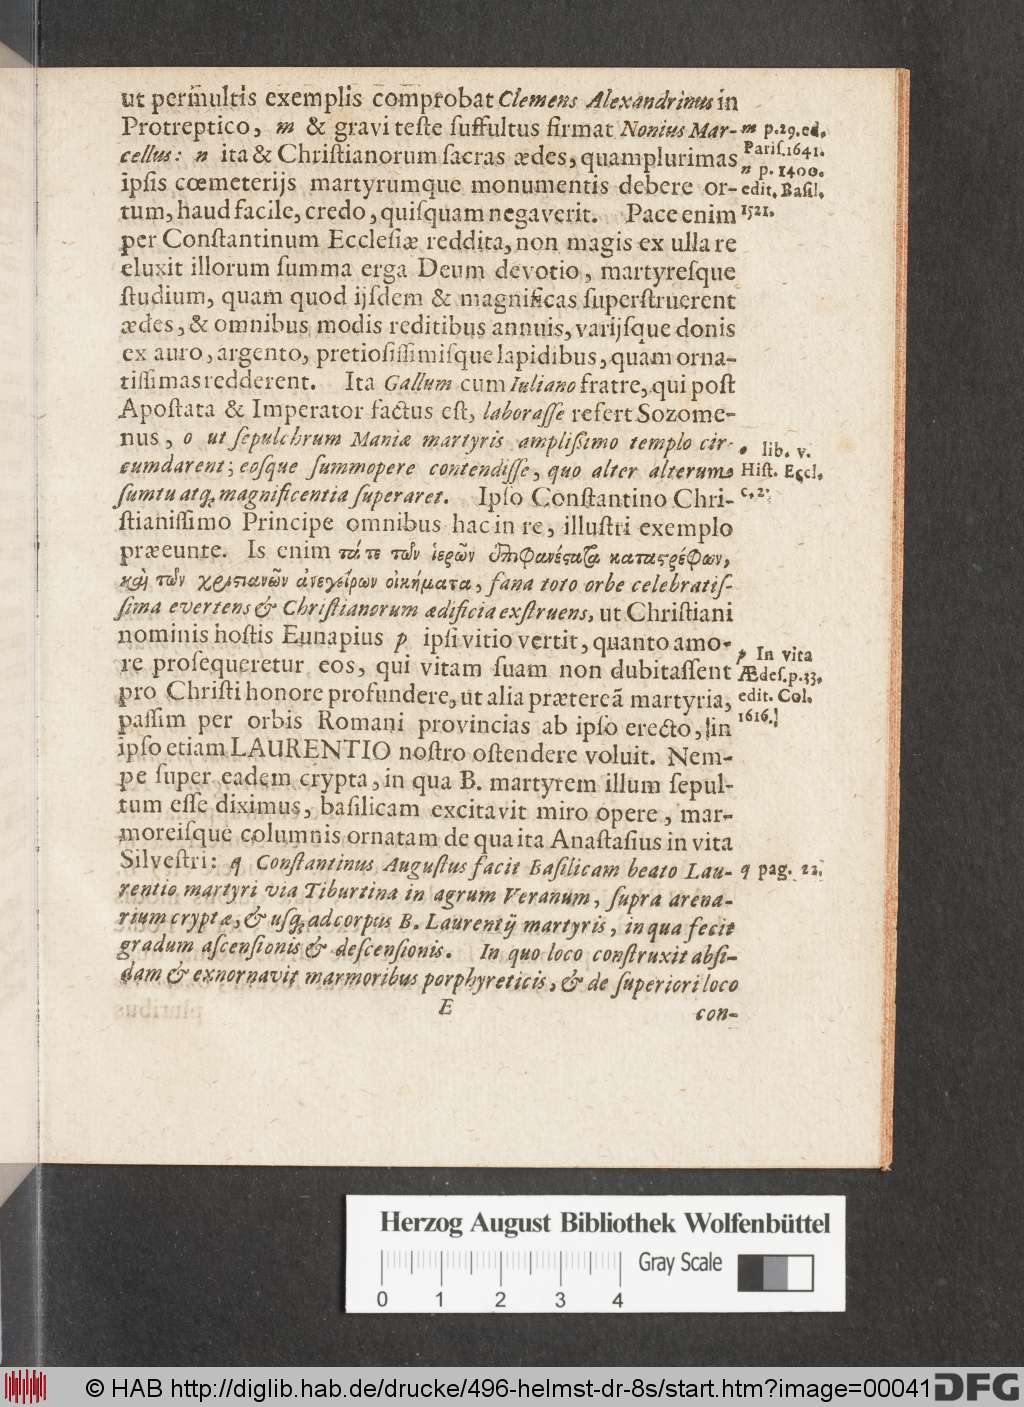 ut permultis exemplis comprobat Clemens Alexandrinus in
Protreptico, m & gravi teſte ſuffultus firmat Nonius Mar-
cellus: n ita & Chriſtianorum ſacras ædes, quamplurimas
ipſis cœmeterijs martyrumque monumentis debere or-
tum, haud facile, credo, quiſquam negaverit. Pace enim
per Conſtantinum Eccleſiæ reddita, non magis ex ulla re
eluxit illorum ſumma erga Deum devotio, martyreſque
ſtudium, quam quod ijſdem & magnificas ſuperſtruerent
ædes, & omnibus modis reditibus annuis, varijſque donis
ex auro, argento, pretioſiſſimiſque lapidibus, quàm orna-
tiſſimas redderent. Ita Gallum cum Iuliano fratre, qui poſt
Apoſtata & Imperator factus eſt, laboraſſe refert Sozome-
nus, o ut ſepulchrum Maniæ martyris ampliſſimo templo cir-
cumdarent; eoſque ſummopere contendiſſe, quo alter alterum
ſumtu atq; magnificentia ſuperaret. Ipſo Conſtantino Chri-
ſtianiſſimo Principe omnibus hac in re, illuſtri exemplo
præeunte. Is enim τά τε τῶν ἱερῶν ἐπιφανέϛατα καταϛρέφων,
καὶ τῶν χριϛιανῶν ἀνεγείρων οἰκήματα, fana toto orbe celebratiſ-
ſima evertens & Chriſtianorum ædificia exſtruens, ut Chriſtiani
nominis hoſtis Eunapius p ipſi vitio vertit, quanto amo-
re proſequeretur eos, qui vitam ſuam non dubitaſſent
pro Chriſti honore profundere, ut alia prætereà martyria,
paſſim per orbis Romani provincias ab ipſo erecto, in
ipſo etiam LAURENTIO noſtro oſtendere voluit. Nem-
pe ſuper eadem crypta, in qua B. martyrem illum ſepul-
tum eſſe diximus, baſilicam excitavit miro opere, mar-
moreiſque columnis ornatam de qua ita Anaſtaſius in vita
Silveſtri: q Conſtantinus Auguſtus facit Baſilicam beato Lau-
rentio martyri via Tiburtina in agrum Veranum, ſupra arena-
rium cryptæ, & uſq; ad corpus B. Laurentij martyris, in qua fecit
gradum aſcenſionis & deſcenſionis. In quo loco conſtruxit abſi-
dam & exnornavit marmoribus porphyreticis, & de ſuperiori loco
E
con-
m p. 29. ed.
Pariſ. 1641.
n p. 1400.
edit. Baſil.
1521.
o lib. v.
Hiſt. Eccl.
c. 2.
p In vita
Ædeſ. p. 33.
edit. Col.
1616.
q pag. 22.
Herzog August Bibliothek Wolfenbüttel
Gray Scale
0 1 2 3 4
© HAB http://diglib.hab.de/drucke/496-helmst-dr-8s/start.htm?image=00041
DFG